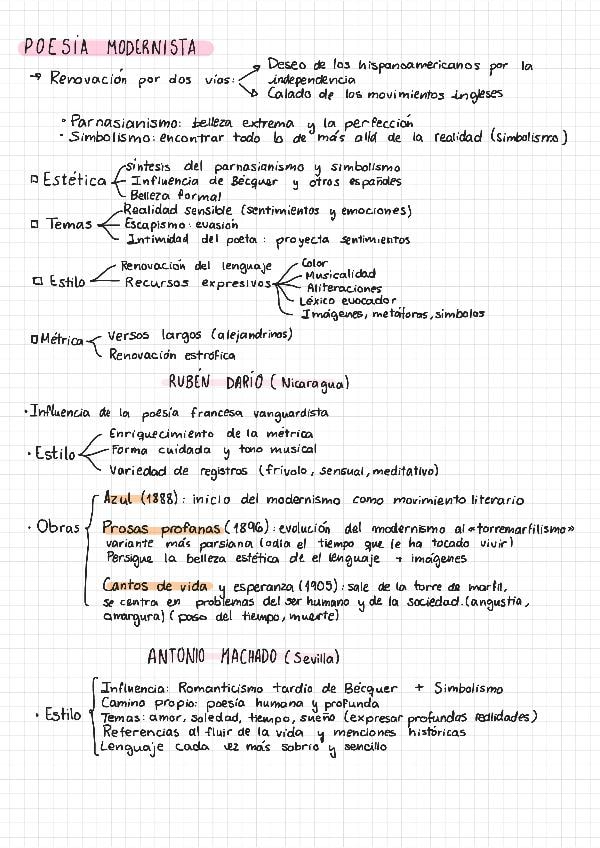 POESÍA MODERNISTA
→ Renovación por dos vías:
Deseo de los hispanoamericanos por la
independencia
Calado de los movimientos ingleses
• Parnasianismo: belleza extrema y la perfección
• Simbolismo: encontrar todo lo de más allá de la realidad (simbolismo)
Estética
síntesis del parnasianismo y simbolismo
Influencia de Bécquer y otros españoles
Belleza formal
Temas
Realidad sensible (sentimientos y emociones)
Escapismo: evasión
Intimidad del poeta: proyecta sentimientos
Estilo
Renovación del lenguaje
Recursos expresivos
Color
Musicalidad
Aliteraciones
Léxico evocador
Imágenes, metáforas, simbolos
Métrica
Versos largos (alejandrinos)
Renovación estrófica
RUBÉN DARÍO (Nicaragua)
• Influencia de la poesía francesa vanguardista
• Estilo
Enriquecimiento de la métrica
Forma cuidada y tono musical
Variedad de registros (frívolo, sensual, meditativo)
• Obras
Azul (1888): inicio del modernismo como movimiento literario
Prosas profanas (1896): evolución del modernismo al «torremarfilismo»
variante más parsiana (odia el tiempo que le ha tocado vivir)
Persigue la belleza estética de el lenguaje + imágenes
Cantos de vida y esperanza (1905): sale de la torre de marfil,
se centra en problemas del ser humano y de la sociedad. (angustia,
amargura) (paso del tiempo, muerte)
ANTONIO MACHADO (Sevilla)
• Estilo
Influencia: Romanticismo tardío de Bécquer + Simbolismo
Camino propio: poesía humana y profunda
Temas: amor, soledad, tiempo, sueño (expresar profundas realidades)
Referencias al fluir de la vida y menciones históricas
Lenguaje cada vez más sobrio y sencillo